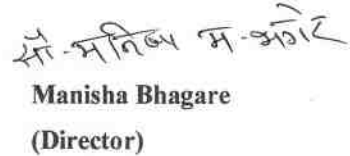 सौ-मनिषा म-भगरे
Manisha Bhagare
(Director)